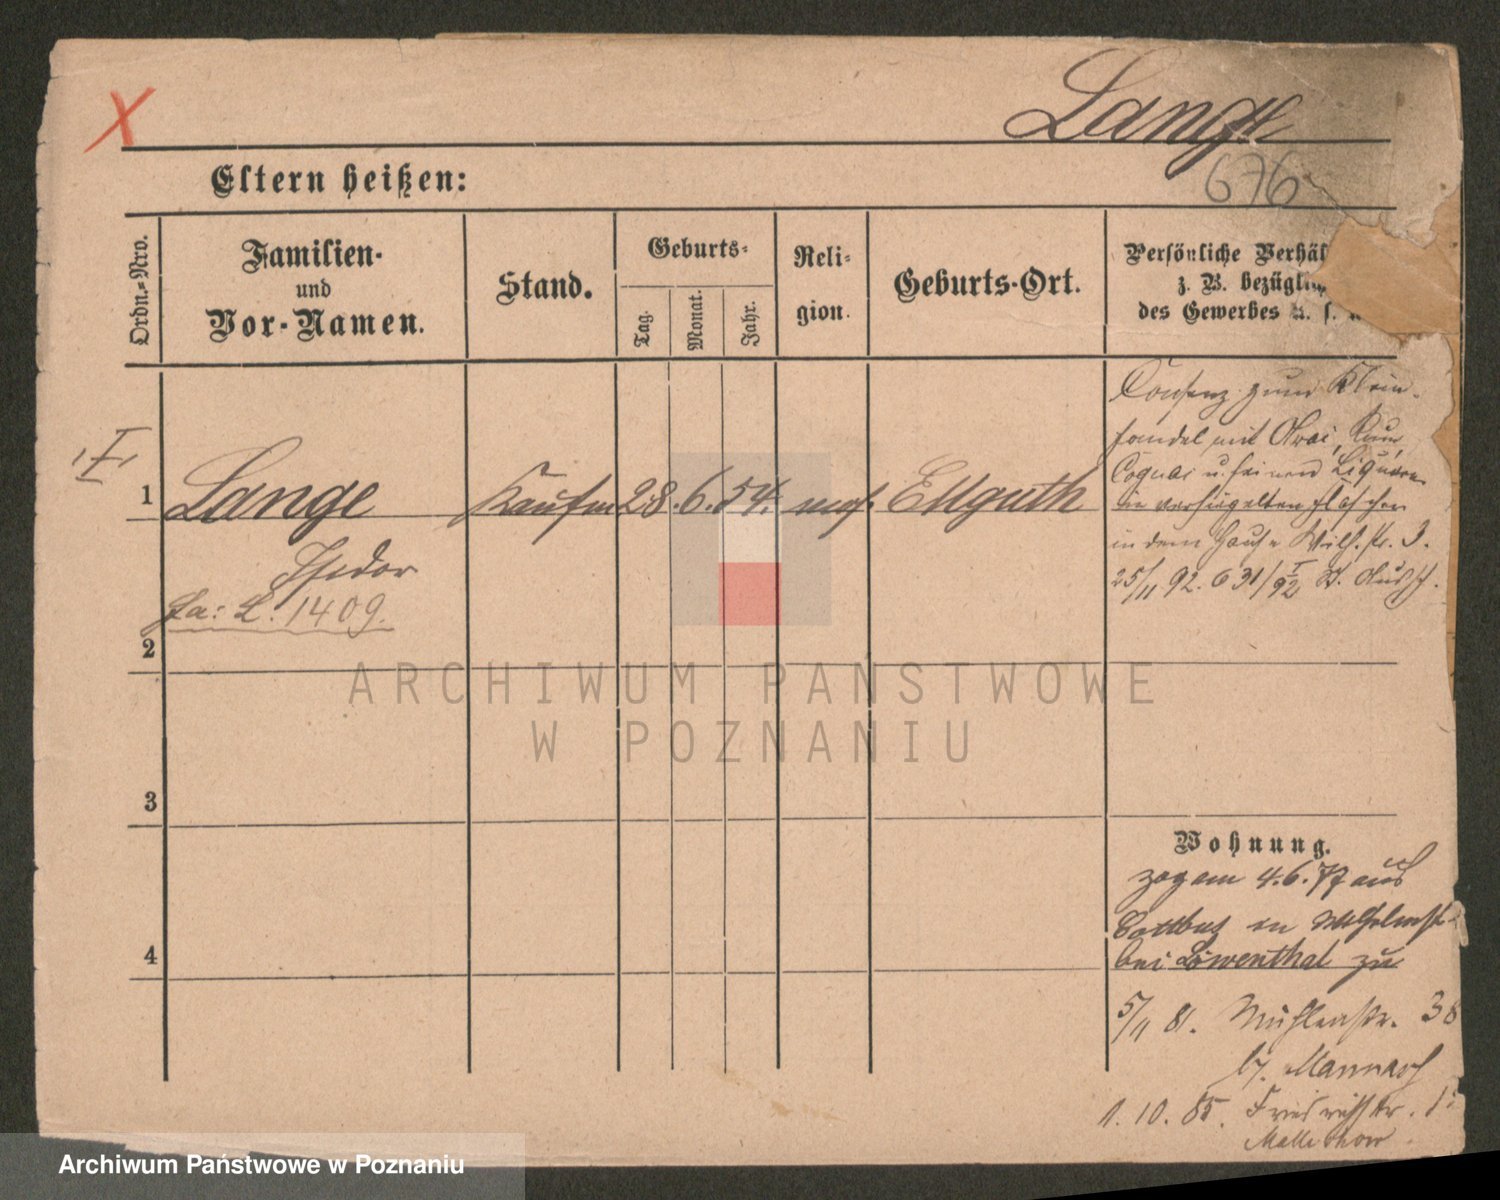 Lange
676
Eltern heißen:
Ordn.-Nro.
Familien-
und
Vor-Namen.
Stand.
Geburts-
Tag.
Monat.
Jahr.
Reli-
gion.
Geburts-Ort.
Persönliche Verhäl
z. B. bezügli
des Gewerbes u. s. w
I
1
Lange
Isidor
fa: L. 1409.
Kaufm
28. 6. 54.
mos.
Ellguth
Consenz zum Klein-
handel mit Arac, Rum,
Cognac u. feinen Liquören
in versiegelten Flaschen
in dem Hause Wilh. str. 3.
25/11 92. 631/92 I
2
3
4
Wohnung.
zog am 4.6.77 aus
Cottbus in Wilhelmst
bei Löwenthal zu
5/11 81. Mühlenstr. 38
b/. Mannasch
1. 10. 85. Friedrichstr.
ARCHIWUM PAŃSTWOWE
W POZNANIU
Archiwum Państwowe w Poznaniu